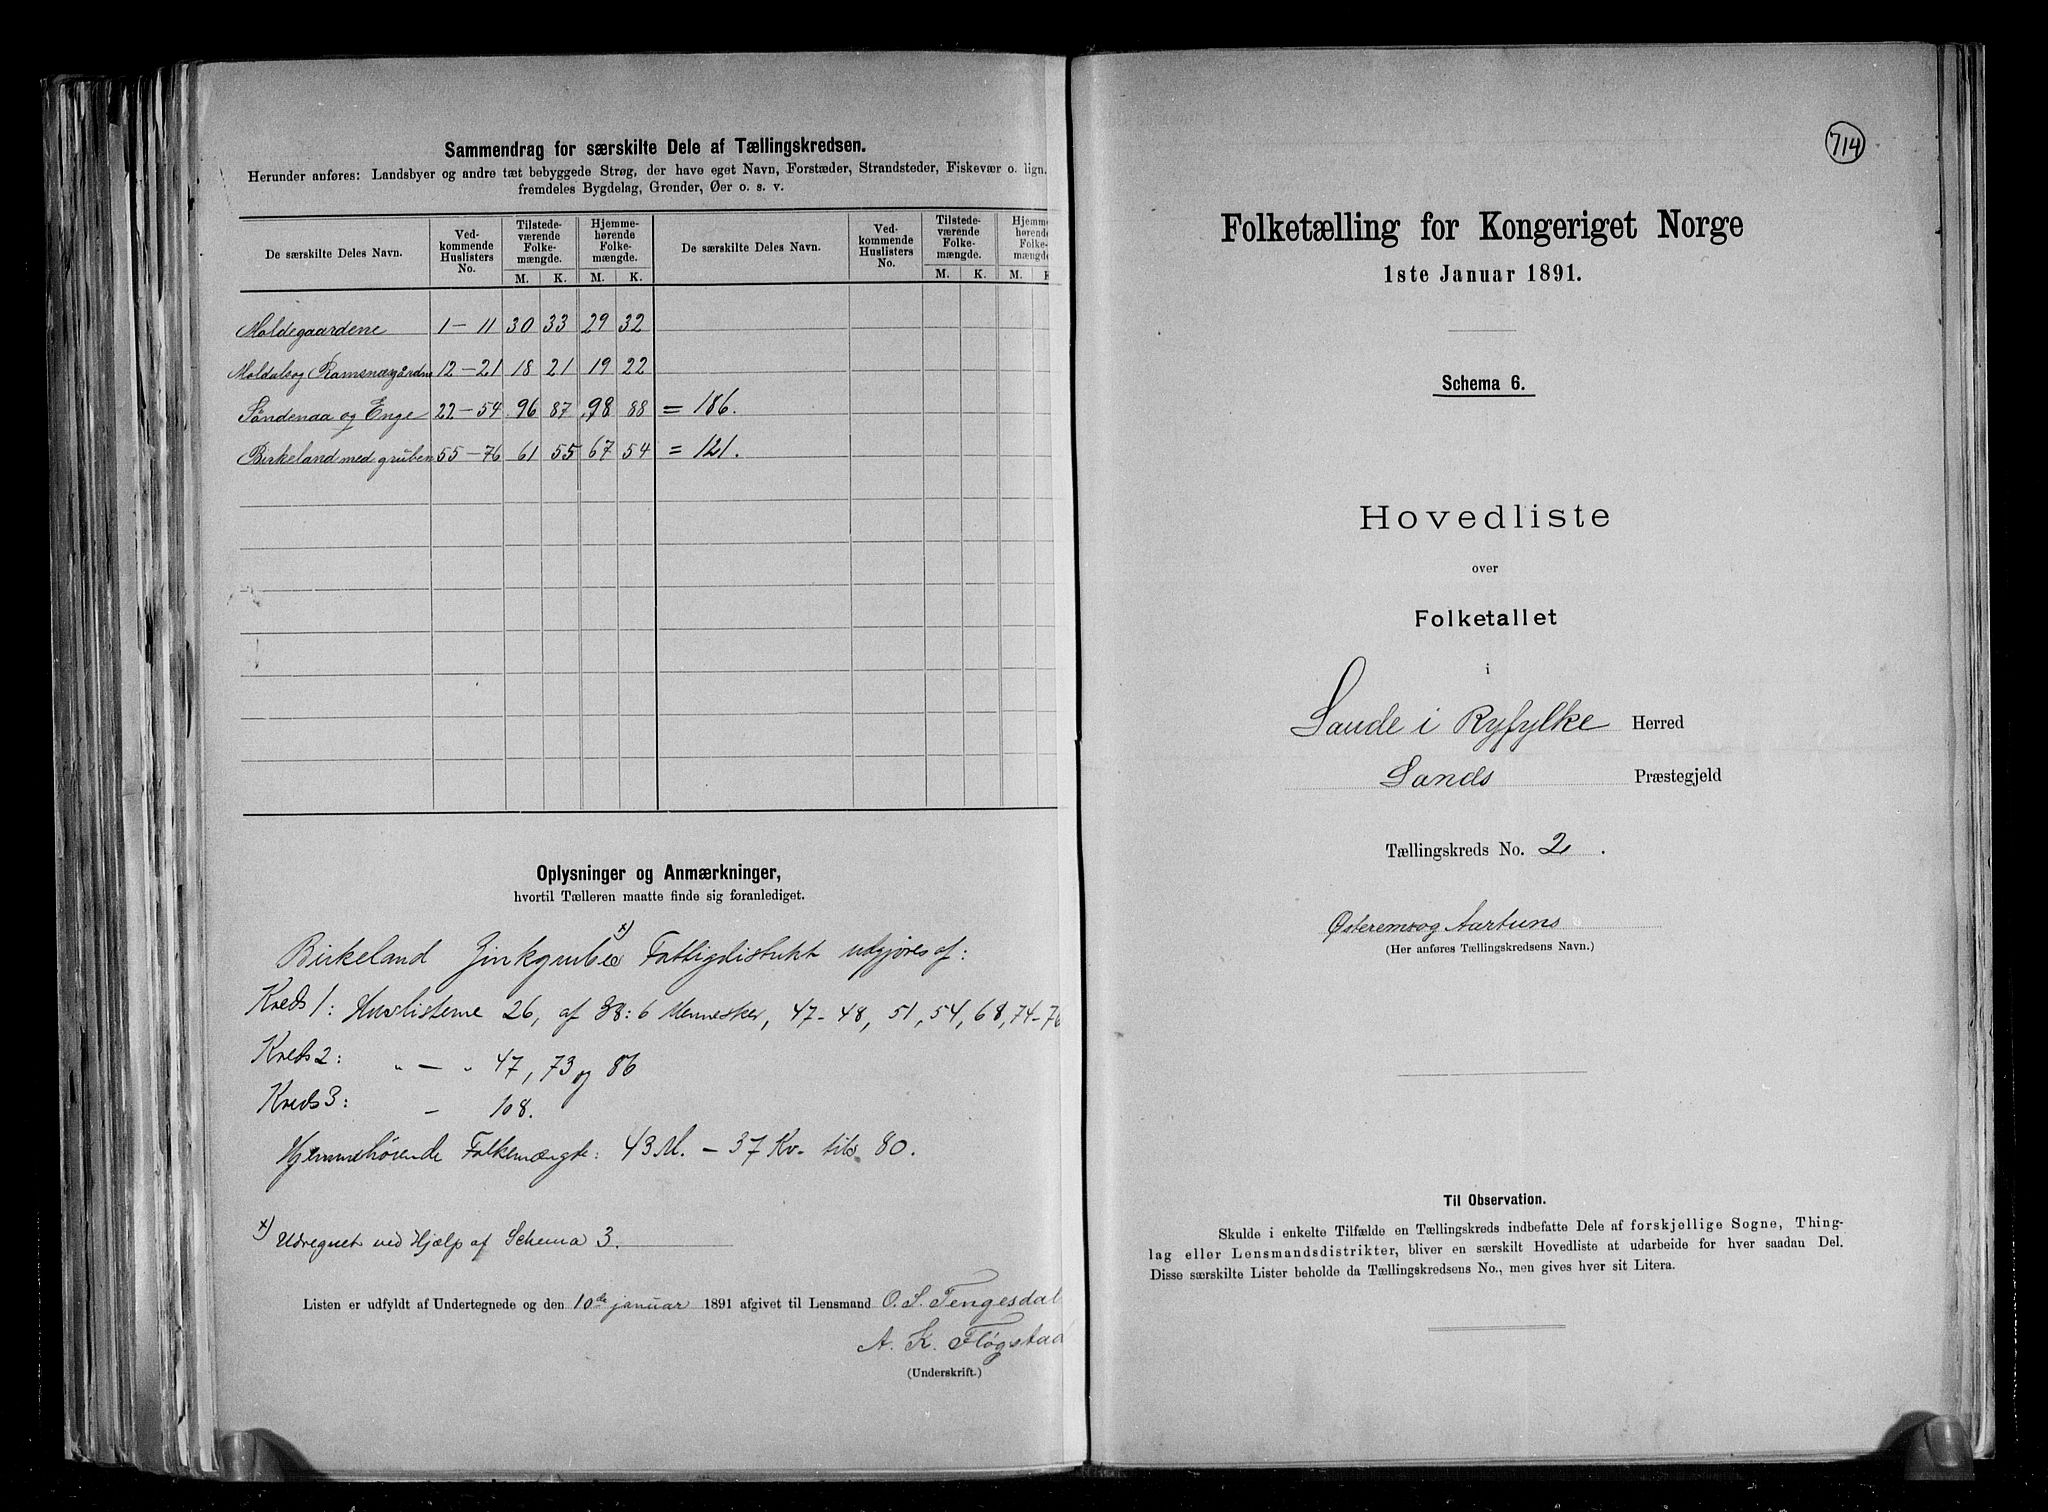 Sammendrag for særskilte Dele af Tællingskredsen.
Herunder anføres: Landsbyer og andre tæt bebyggede Strøg, der have eget Navn, Forstæder, Strandsteder, Fiskevær o. lign.
fremdeles Bygdelag, Grender, Øer o. s. v.
De særskilte Deles Navn. Ved-kommende Huslisters No. Tilstede-værende Folke-mængde. Hjemme-hørende Folke-mængde. De særskilte Deles Navn. Ved-kommende Huslisters No. Tilstede-værende Folke-mængde. Hjemme-hørende Folke-mængde
M. K. M. K. M. K. M. K
Moldegaardene 1-11 30 33 29 32
Moldals og Ramsnægårdne 12-21 18 21 19 22
Søndenaa og Enge 22-54 96 87 98 88 = 186.
Birkeland med gruben 55-76 61 55 67 54 = 121.
Oplysninger og Anmærkninger,
hvortil Tælleren maatte finde sig foranlediget.
Birkeland Zinkgrube x) Fattigdistrikt udgjøres af:
Kreds 1: Huslisterne 26, af 38: 6 Mennesker, 47-48, 51, 54, 68, 74-76
Kreds 2: " — " 47, 73 og 86
Kreds 3: — 108.
Hjemmehørende Folkemængde: 43 M. - 37 Kv. tils. 80.
x) Udregnet ved Hjælp af Schema 3.
Listen er udfyldt af Undertegnede og den 10de januar 1891 afgivet til Lensmand O. S. Tengesdal
A. K. Fløgstad
(Underskrift.)
714
Folketælling for Kongeriget Norge
1ste Januar 1891.
Schema 6.
Hovedliste
over
Folketallet
i
Sande i Ryfylke Herred
Sands Præstegjeld
Tællingskreds No. 2.
Østerems og Aartuns
(Her anføres Tællingskredsens Navn.)
Til Observation.
Skulde i enkelte Tilfælde en Tællingskreds indbefatte Dele af forskjellige Sogne, Thing-
lag eller Lensmandsdistrikter, bliver en særskilt Hovedliste at udarbeide for hver saadan Del.
Disse særskilte Lister beholde da Tællingskredsens No., men gives hver sit Litera.